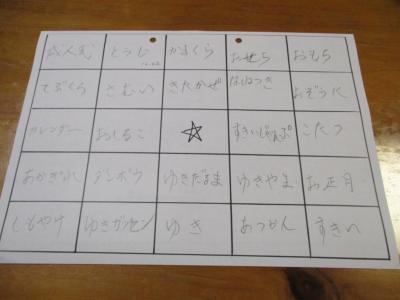 成人式 とうじ かまくら おせち おもち
12.22
てぶくろ さむい きたかぜ はねつき おぞうに
カレンダー おしるこ ☆ すきいじゃんぷ こたつ
あかぎれ ダンボウ ゆきだるま ゆきやま お正月
しもやけ ゆきガッセン ゆき あつかん すきい